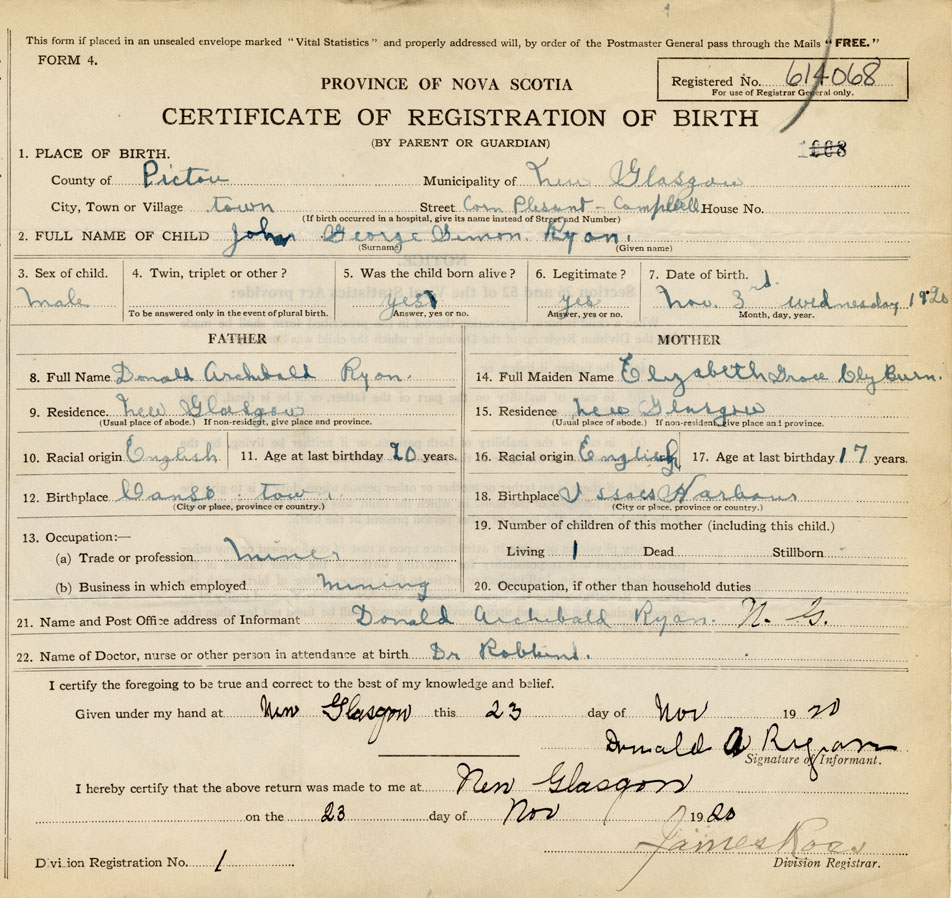 This form if placed in an unsealed envelope marked "Vital Statistics" and properly addressed will, by order of the Postmaster General pass through the Mails "FREE."
FORM 4.
PROVINCE OF NOVA SCOTIA
Registered No. 614068
For use of Registrar General only.
CERTIFICATE OF REGISTRATION OF BIRTH
(BY PARENT OR GUARDIAN)
1. PLACE OF BIRTH.
County of Pictou Municipality of New Glasgow
City, Town or Village town Street Corn Plesant - Campbell House No.
(If birth occurred in a hospital, give its name instead of Street and Number)
2. FULL NAME OF CHILD John George Simon Ryan.
(Surname) (Given name)
3. Sex of child. 4. Twin, triplet or other? 5. Was the child born alive? 6. Legitimate? 7. Date of birth.
Male yes yes Nov. 3rd Wednesday 1920
To be answered only in the event of plural birth. Answer, yes or no. Answer, yes or no. Month, day, year.
FATHER MOTHER
8. Full Name Donald Archibald Ryan. 14. Full Maiden Name Elyzabeth Grace Clyburn.
9. Residence New Glasgow 15. Residence New Glasgow
(Usual place of abode.) If non-resident, give place and province. (Usual place of abode.) If non-resident, give place and province.
10. Racial origin English 11. Age at last birthday 20 years. 16. Racial origin English 17. Age at last birthday 17 years.
12. Birthplace Canso town. 18. Birthplace Issacs Harbour
(City or place, province or country.) (City or place, province or country.)
13. Occupation:— 19. Number of children of this mother (including this child.)
(a) Trade or profession Miner Living 1 Dead Stillborn
(b) Business in which employed Mining 20. Occupation, if other than household duties
21. Name and Post Office address of Informant Donald Archibald Ryan. N. G.
22. Name of Doctor, nurse or other person in attendance at birth Dr Robbins.
I certify the foregoing to be true and correct to the best of my knowledge and belief.
Given under my hand at New Glasgow this 23 day of Nov 1920
Donald A Ryan
Signature of Informant.
I hereby certify that the above return was made to me at New Glasgow
on the 23 day of Nov 1920
James Roas
Division Registrar.
Division Registration No. 1